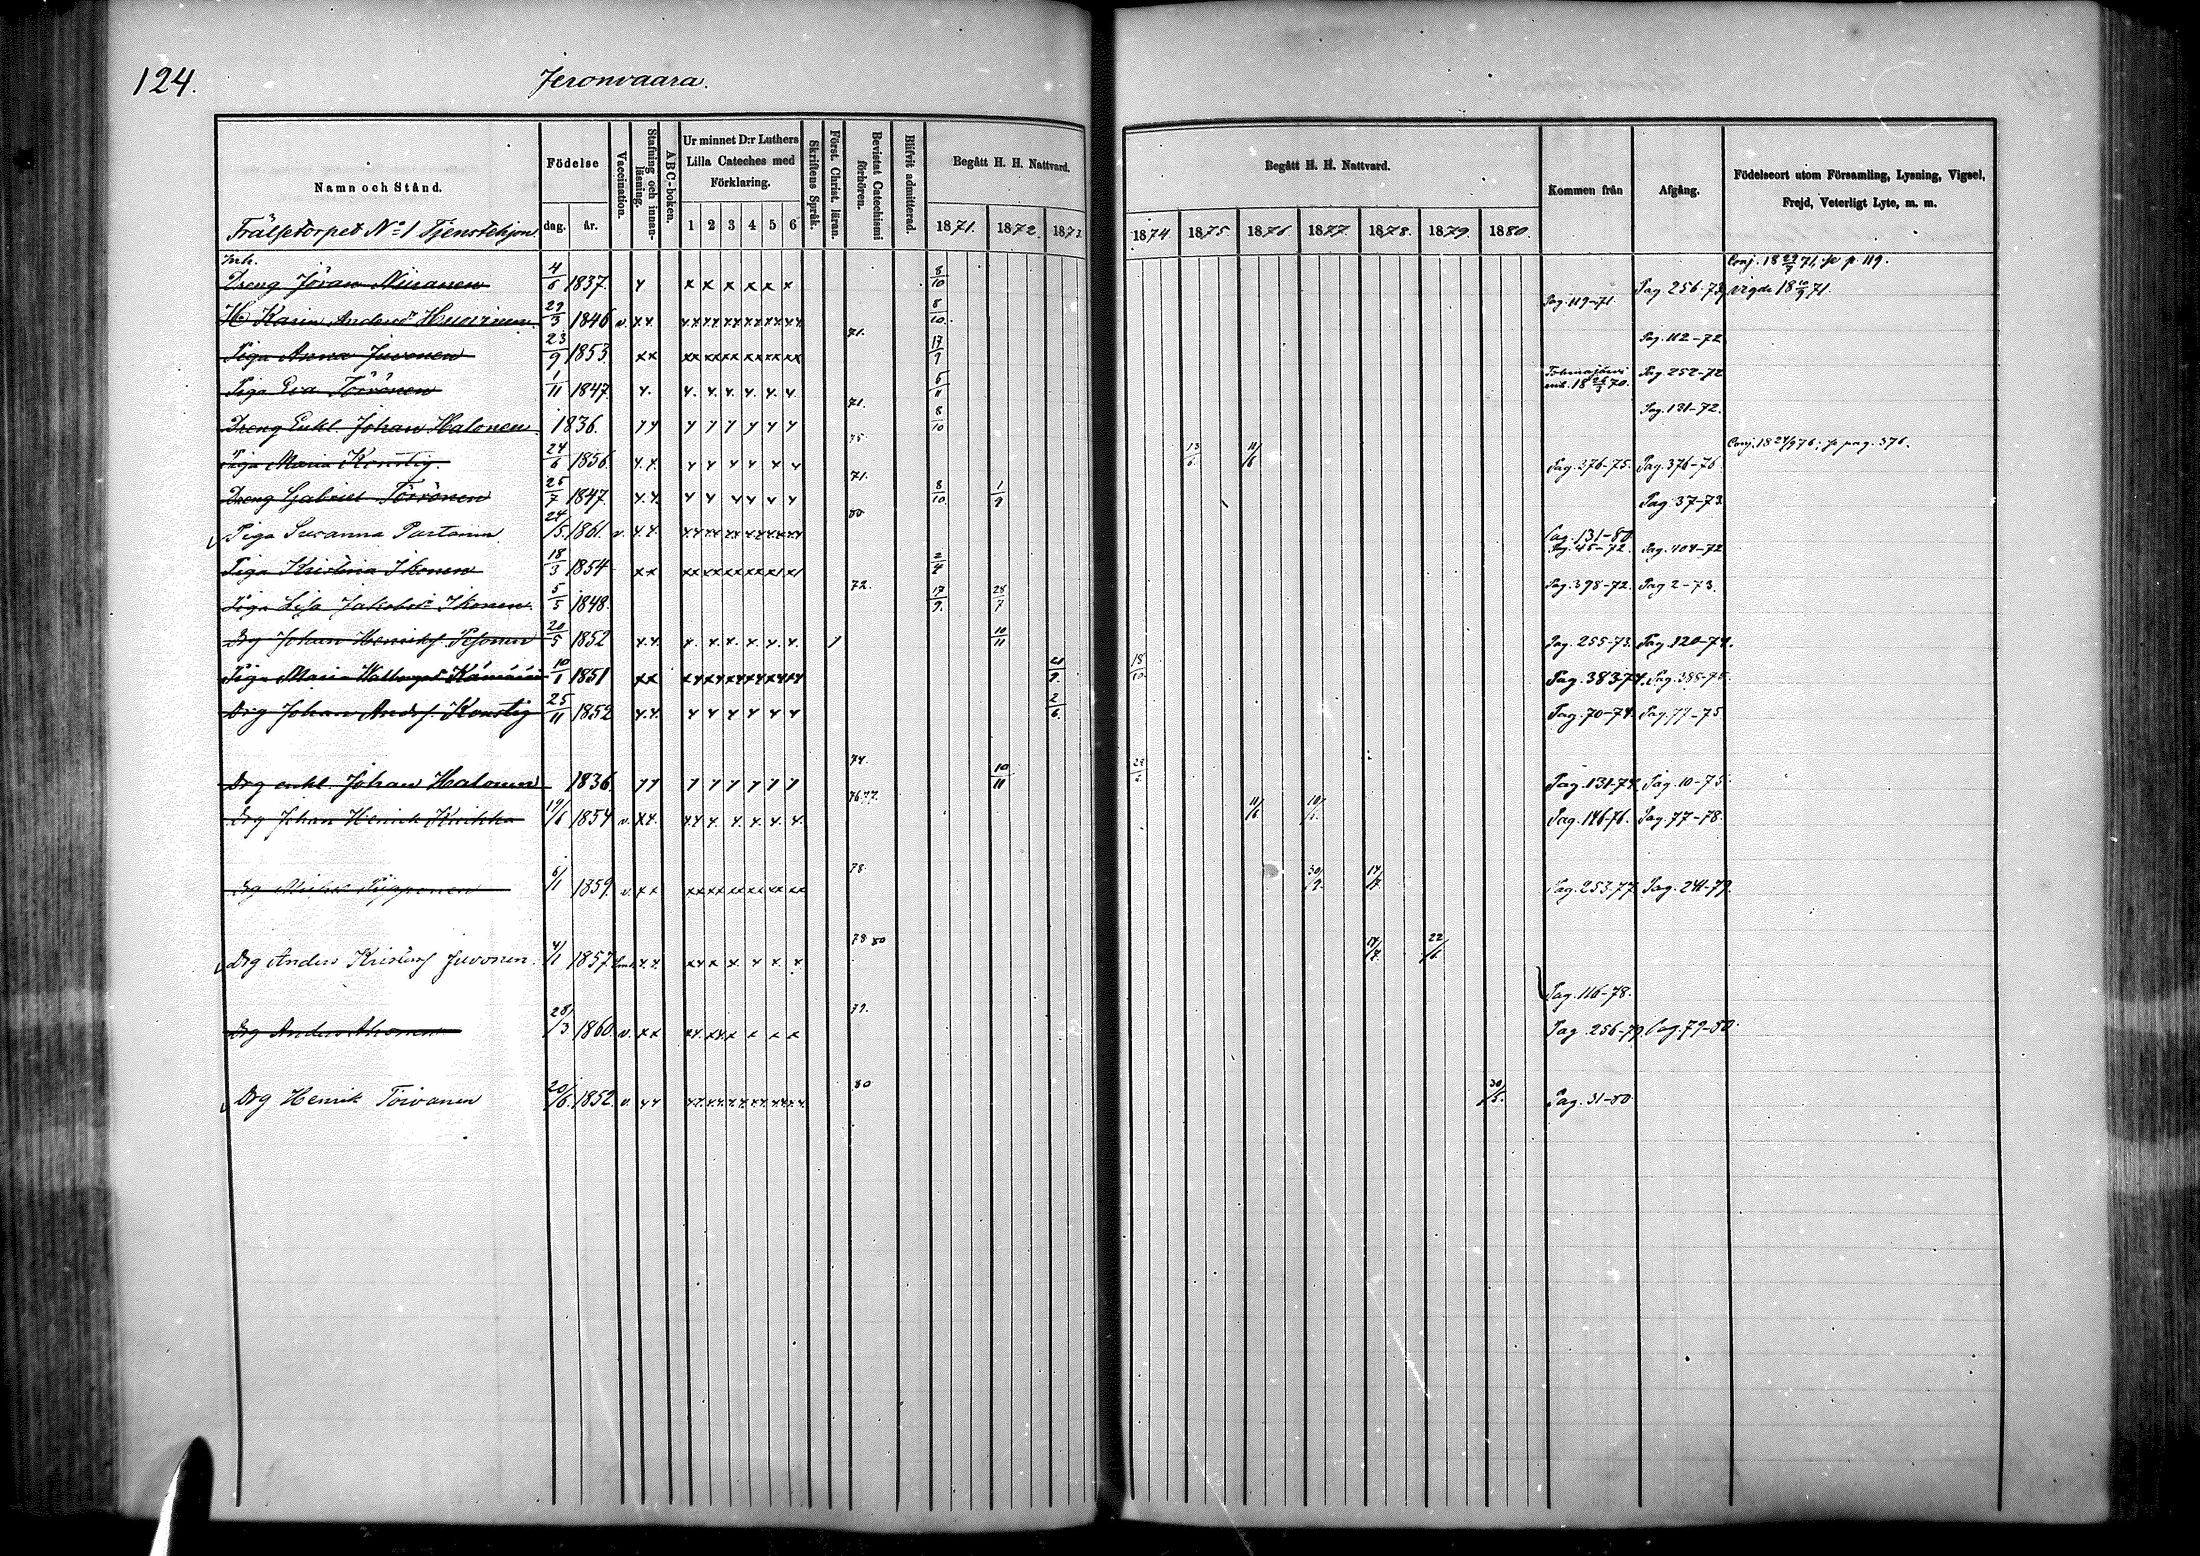 124.
Jeronvaara.
Namn och Stånd.
Födelse
dag.
år.
Vaccination.
Stafning och innanläsning.
ABC-boken.
Ur minnet D:r Luthers Lilla Cateches med Förklaring.
1 2 3 4 5 6
Skriftens Språk.
Först. Christ. läran.
Bevistat Catechismi förhören.
Blifvit admitterad.
Begått H. H. Nattvard.
1871. 1872. 1873.
Begått H. H. Nattvard.
1874 1875. 1876 1877. 1878. 1879. 1880.
Kommen från
Afgång.
Födelseort utom Församling, Lysning, Vigsel, Frejd, Veterligt Lyte, m. m.
Frälsetorpet No 1 Tjenstehjon
Inh.
Dreng Jöran 4/6 1837. x x x x x x x 8/10 Pag 256-73 Conj. 18 /71, se p. 119.
vigde 18 /71.
H. Karin Andersd. Huovinen 29/3 1846 v. xx xx xx xx xx xx xx 8/10. Pag. 119-71.
Piga Anna Juvonen 23/9 1853. xx xx xx xx xx xx xx 71. 17/9 Pag. 112-72
Piga Eva Törrönen 1/11 1847 x. x. x. x. x. x. x. 5/11 Pag 252-72
Dreng Enkl. Johan Halonen 1836. x x x x x x x x 71. 8/10 Pag. 131-72.
Piga Maria Konstig. 24/6 1856. x. x. x x x x x x 75. 13/6. 11/6 Pag. 376-75. Pag. 376-76. Conj. 18 24/9 76; se pag. 376.
Dreng Gabriel Törrönen 25/7 1847. x. x x x x x x x 71. 8/10. 1/9 Pag. 37-73.
Piga Susanna Partanen 24/5. 1861. v. x x. xx xx xx xx xx xx 80 Pag. 131-80
Piga Kristina Ikonen 18/3 1854 xx xx xx xx xx xx xx 2/4 Pag. 45-72. Pag. 404-72
Piga Lisa Jakobsd. Ikonen. 5/5 1848. 72. 17/9. 28/7 Pag. 398-72. Pag 2-73.
Drg Johan Henriksf. 20/5 1852 x x. x. x. x. x. x. x. 10/11 Pag. 255-73. Pag. 120-74.
Piga Maria 10/1 1851 xx xx xx xx xx xx xx 21/9. 18/10. Pag. 383-74. Pag. 385-75.
Drg Johan Andersf. Konstig 25/11 1852 x. x. x x x x x x 2/6. Pag. 70-74. Pag. 77-75.
Drg enkl. Johan Halonen 1836 x x x x x x x x 74. 10/11 Pag. 131-74. Pag. 10-75.
Drg Johan Henrik Kuikka 19/6 1854 v. xx. xx x. x. x. x. x. 76.77. 11/6 10/ Pag. 146-76. Pag. 77-78.
Drg Piipponen 6/1 1859. v. xx xx xx xx xx xx xx 78. 30/9. 14/7. Pag. 253-77. Pag. 241-79.
Drg Anders Juvonen. 4/1 1857 x x. xx x x x x x 78 80 14/7. 22/6. Pag. 116-78.
Drg Anders Ahonen 28/3 1860. v. xx xx xx x x x x 79. Pag. 256-79. Pag. 79-80.
Drg Henrik Toivanen 20/6. 1852. v. x x xx xx xx xx xx xx 80 30/5. Pag. 31-80